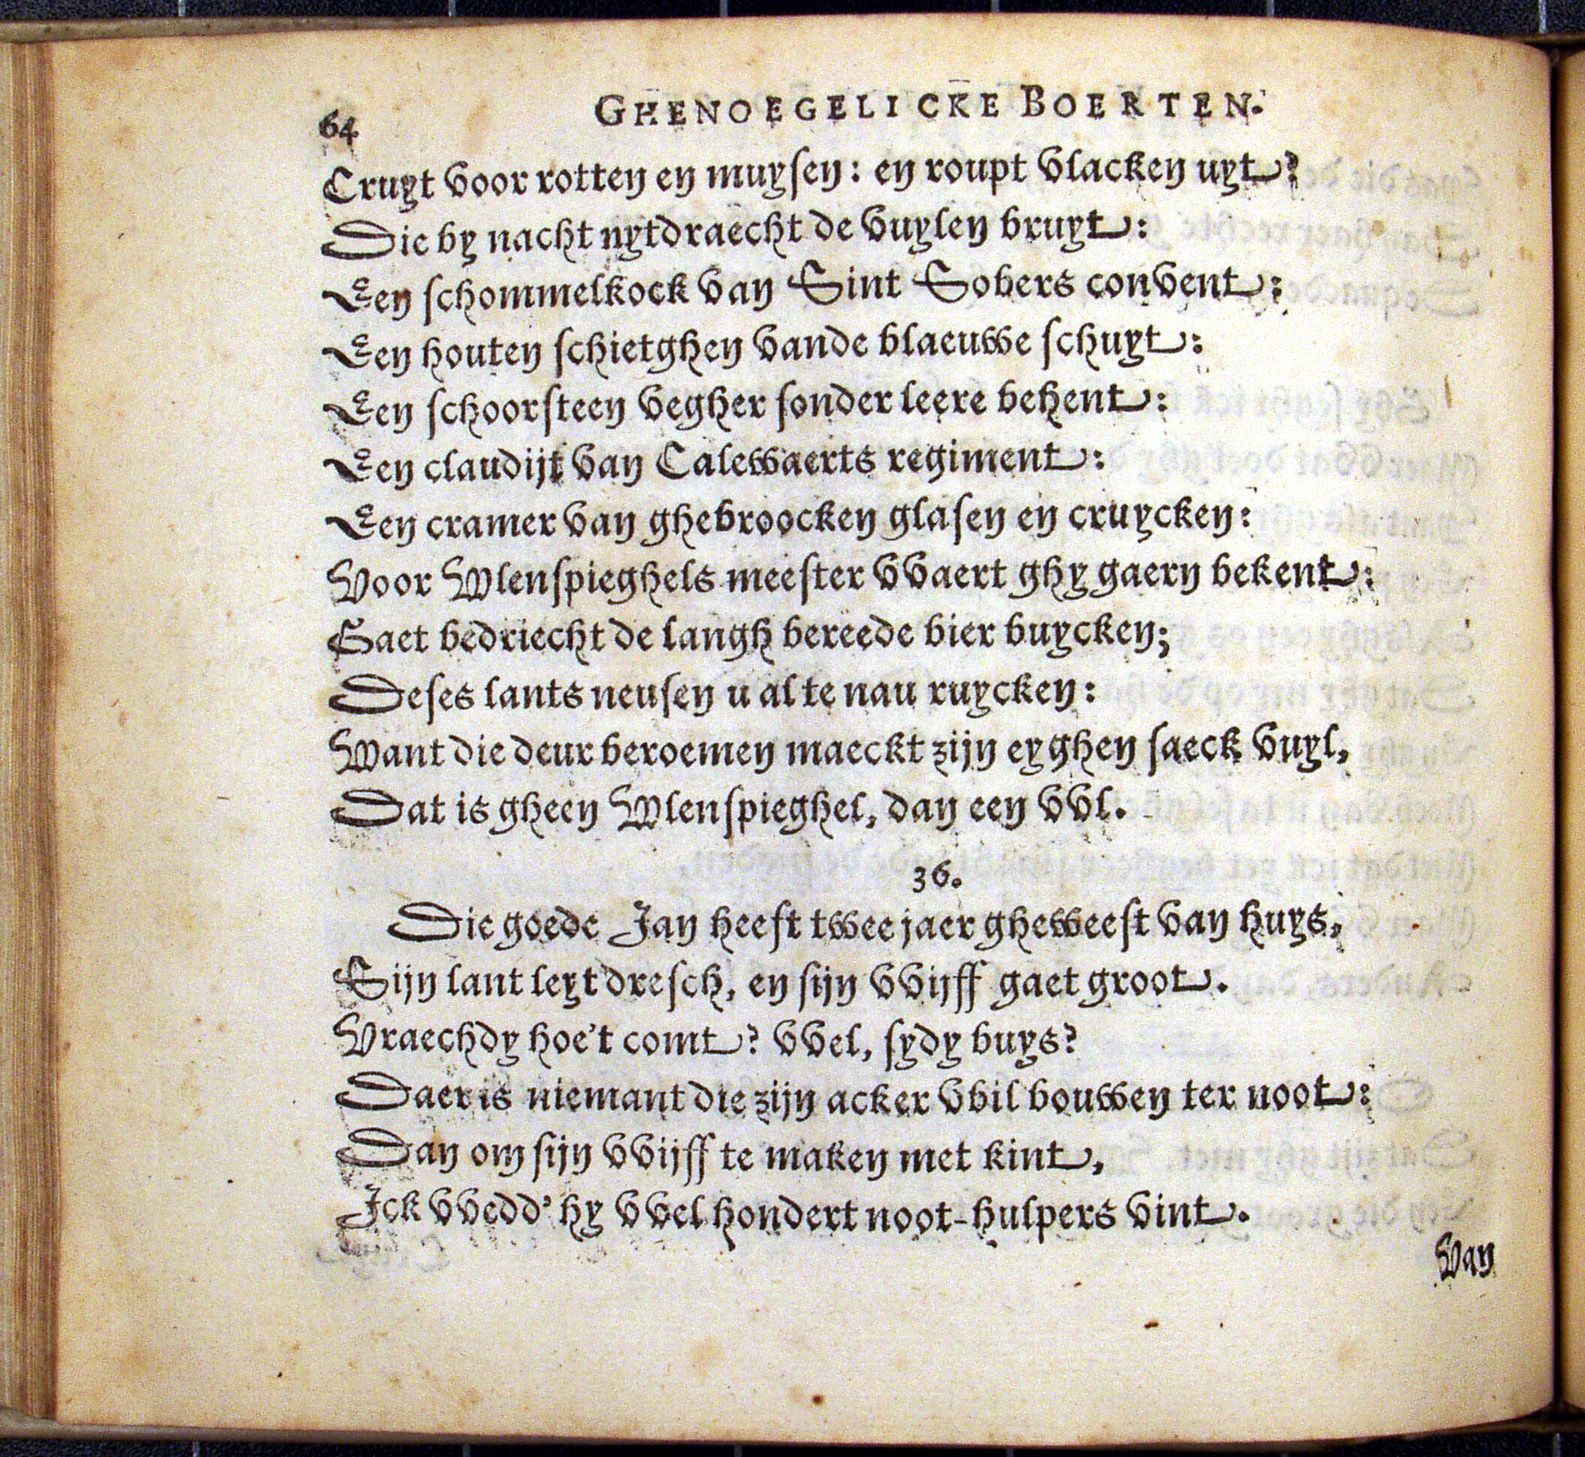 64
GHENOEGELICKE BOERTEN.
Cruyt voor rotten en muysen: en roupt vlacken uyt?
Die by nacht uytdraecht de vuylen bruyt:
Een schommelkock van Sint Sobers convent:
Een houten schietghen vande blaeuwe schuyt:
Een schoorsteen vegher sonder leere behent:
Een claudijt van Calewaerts regiment:
Een cramer van ghebroocken glasen en cruycken:
Voor Wlenspieghels meester vvaert ghy gaern bekent:
Gaet bedriecht de langh bereede bier buycken;
Deses lants neusen u al te nau ruycken:
Want die deur beroemen maeckt zijn eyghen saeck vuyl,
Dat is gheen Wlenspieghel, dan een vvl.
36.
Die goede Jan heeft twee jaer gheweest van huys,
Sijn lant leyt dresch, en sijn vvijff gaet groot.
Vraechdy hoe't comt? vvel, sydy buys?
Daer is niemant die zijn acker vvil bouwen ter noot:
Dan om sijn vvijff te maken met kint,
Ick vvedd' hy vvel hondert noot-hulpers vint.
Van